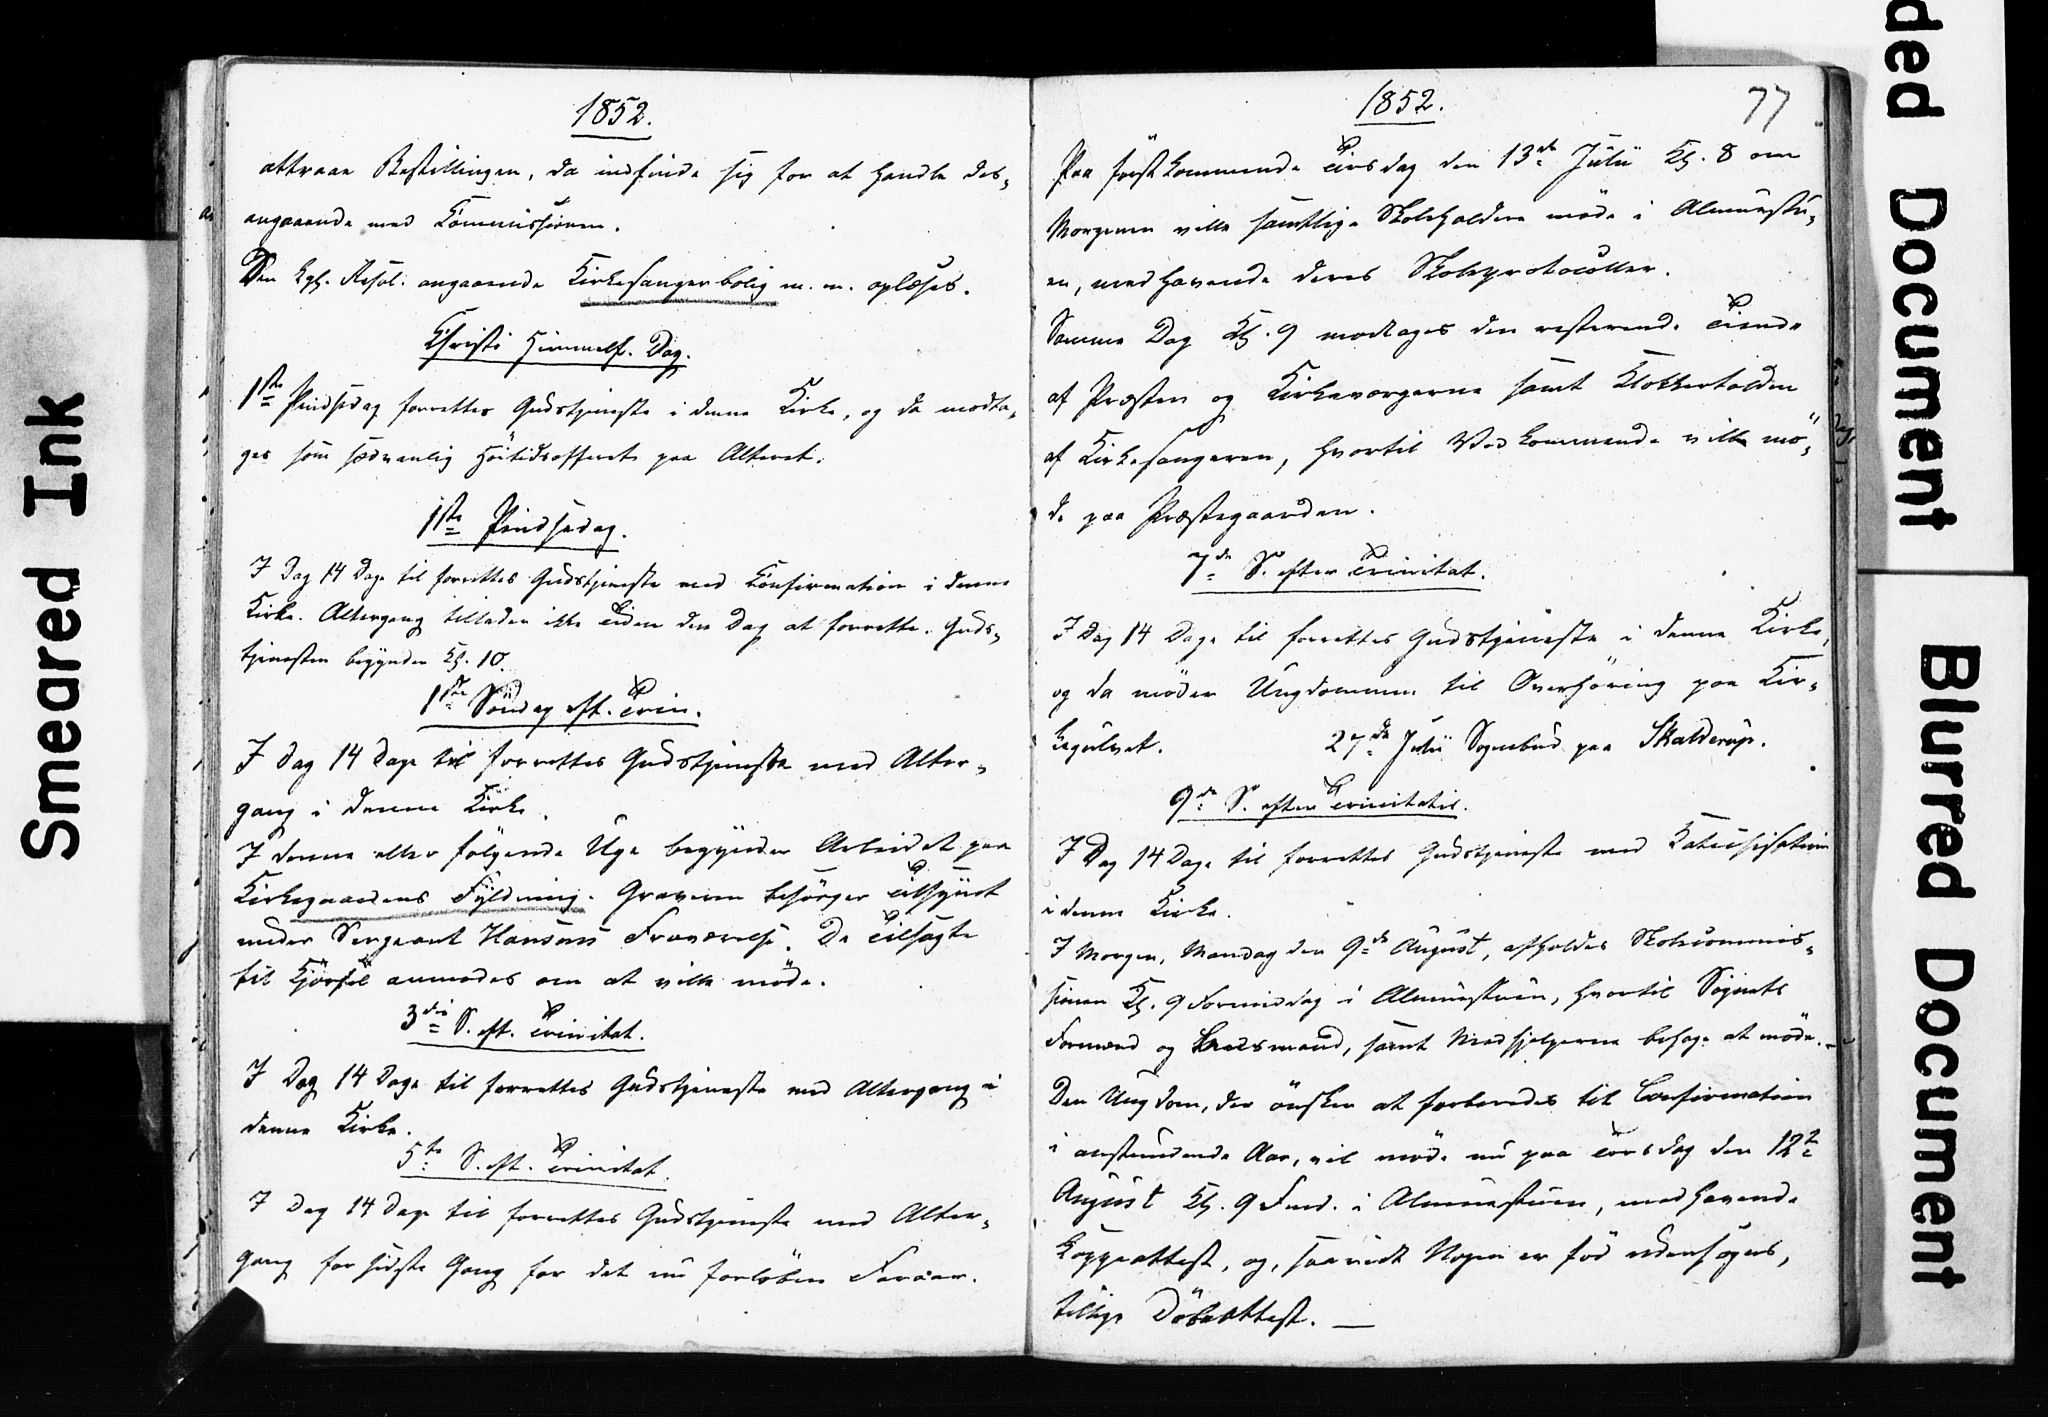 1852.
attraae Bestillingen, da indfinde sig for at handle des-
angaaende med Commissionen.
Den Kgl. Resol. angaaende Kirkesangerbolig m. m. oplæses.
Christi Himmelf. Dag.
1ste Pindsedag forrettes Gudstjeneste i denne Kirke, og da modta-
ges som sædvanlig Höitidsofferet paa Alteret.
1ste Pindsedag.
I Dag 14 Dage til forrettes Gudstjeneste med Confirmation i denne
Kirke. Altergang tillader ikke Tiden den Dag at forrette. Guds-
tjenesten begynder Kl. 10.
1ste Söndag eft. Trin.
I Dag 14 Dage til forrettes Gudstjeneste med Alter-
gang i denne Kirke.
I denne eller fölgende Uge begynder Arbeidet paa
Kirkegaardens Fyldning. Graveren besörger Tilsynet
under Sergeant Hansens Fraværelse. De Tilsagte
til Kjörsel anmodes om at ville möde.
3die S. eft. Trinitat.
I Dag 14 Dage til forrettes Gudstjeneste med Altergang i
denne Kirke.
5te S. eft. Trinitat.
I Dag 14 Dage til forrettes Gudstjeneste med Alter-
gang for sidste Gang for det nu forlöbne Foraar.
1852.
77
Paa förstkommende Tirsdag den 13de Julii Kl. 8 om
Morgenen ville samtlige Skoleholdere möde i Almuestu-
en, medhavende deres Skoleprotocoller.
Samme Dag Kl. 9 modtages den resterende Tiende
af Præsten og Kirkeværgerne samt Klokkertolden
af Kirkesangeren, hvortil Vedkommende ville mö-
de paa Præstegaarden.
7de S. efter Trinitat.
I Dag 14 Dage til forrettes Gudstjeneste i denne Kirke,
og da möder Ungdommen til Overhöring paa Kir-
kegulvet.
27de Julii Sognebud paa Skalderup.
9de S. efter Trinitatis.
I Dag 14 Dage til forrettes Gudstjeneste med Katechisation
i denne Kirke.
I Morgen, Mandag den 9de August, afholdes Skolecommis-
sionen Kl. 9 Formiddag i Almuestuen, hvortil Sognets
Formænd og Lensmand, samt Medhjelperne behage at möde.
Den Ungdom, der önsker at forberedes til Confirmation
i anstundende Aar, vil möde nu paa Torsdag den 12te
August Kl. 9 Fmd. i Almuestuen, medhavende
Koppeattest, og, saavidt Nogen er föd udensogns,
tillige Döbeattest. —
Smeared Ink
ded Document
Blurred Document